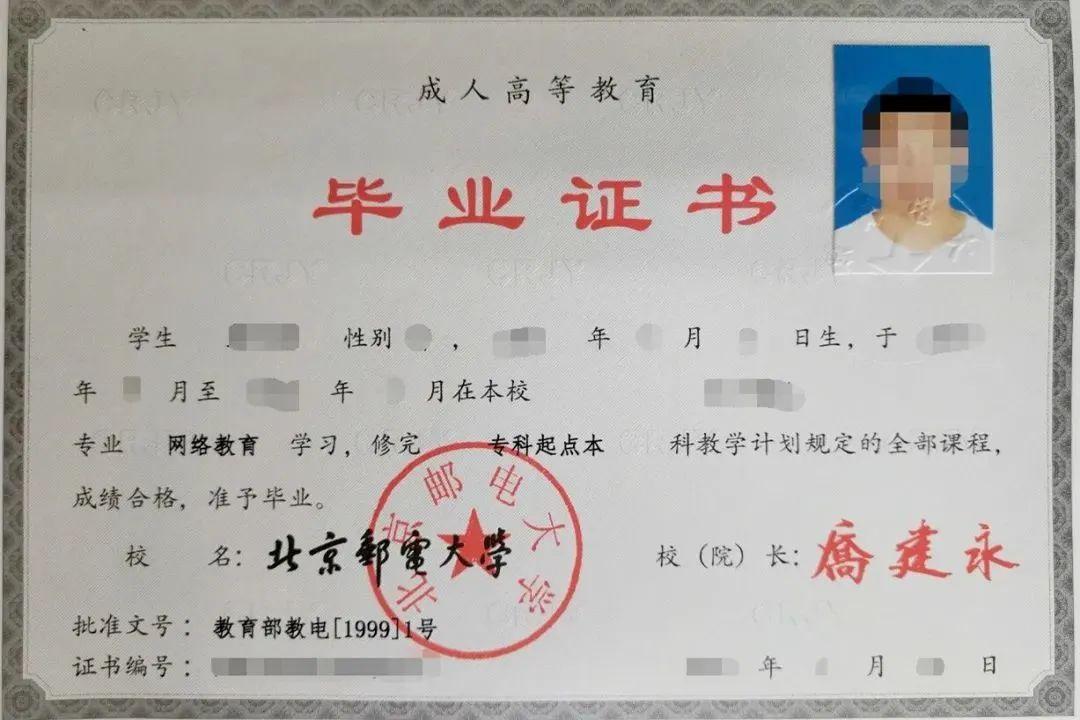 成人高等教育
毕业证书
学生 性别 , 年 月 日生，于
年 月至 年 月在本校
专业 网络教育 学习，修完 专科起点本 科教学计划规定的全部课程，
成绩合格，准予毕业。
校 名：北京郵電大学 校（院）长：喬建永
北京邮电大学
批准文号：教育部教电[1999]1号
证书编号： 年 月 日